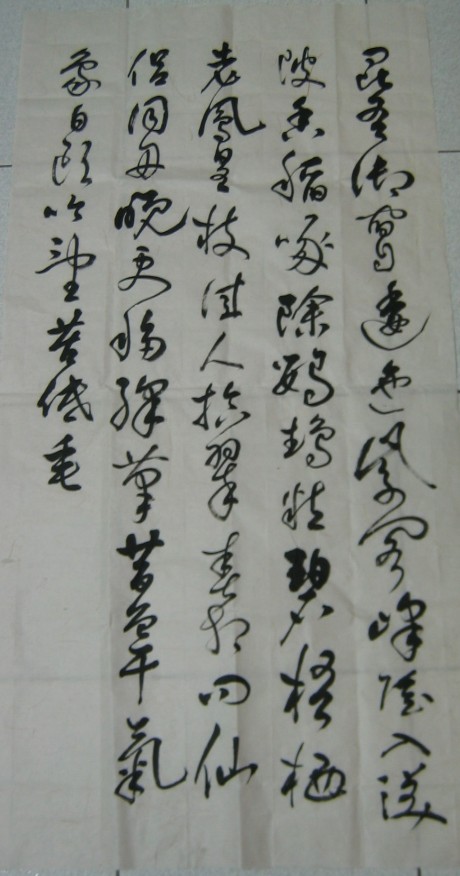 昆吾御宿自逶迤紫閣峰陰入渼
陂香稻啄餘鸚鵡粒碧梧栖
老鳳皇枝佳人拾翠春相问仙
侣同舟晚更移綵筆昔曾干氣
象白頭吟望苦低垂